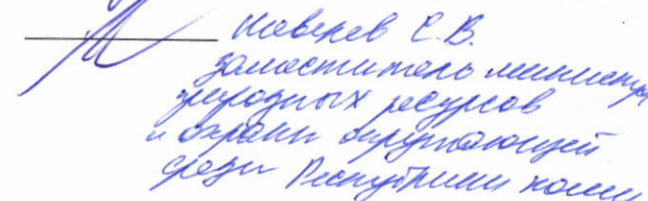 С.В.
заместитель министра
природных ресурсов
и охраны окружающей
среды Республики Коми